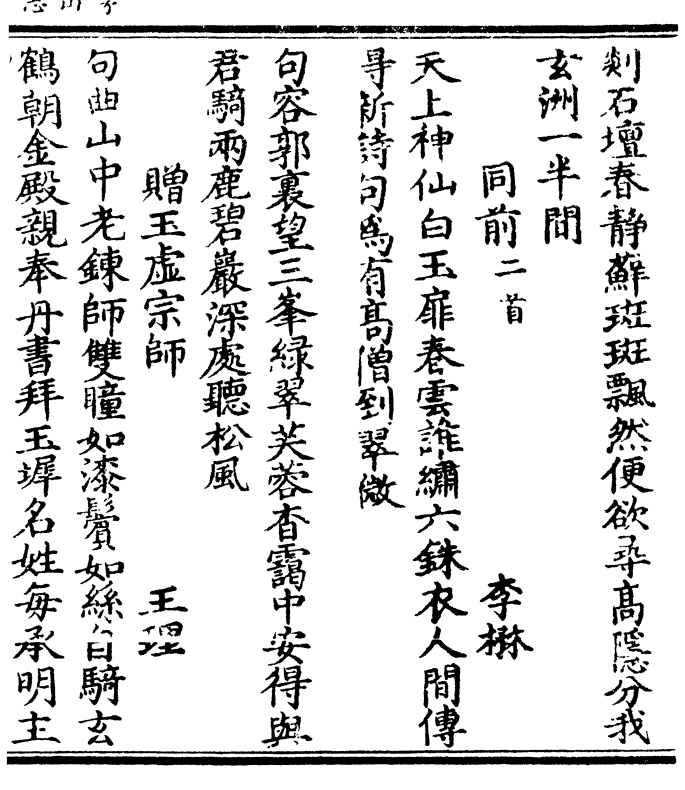 剡石壇春静蘚斑斑飄然便欲尋髙隠分我
玄洲一半間
同前二首 李楙
天上神仙白玉扉春雲誰繡六銖衣人間傳
尋新詩句爲有髙僧到翠微
句容郭裏望三峯緑翠芙蓉杳靄中安得與
君騎兩鹿碧巖深處聽松風
贈玉虚宗師 王理
句曲山中老鍊師雙瞳如漆鬢如絲自騎玄
鶴朝金殿親奉丹書拜玉墀名姓每承明主